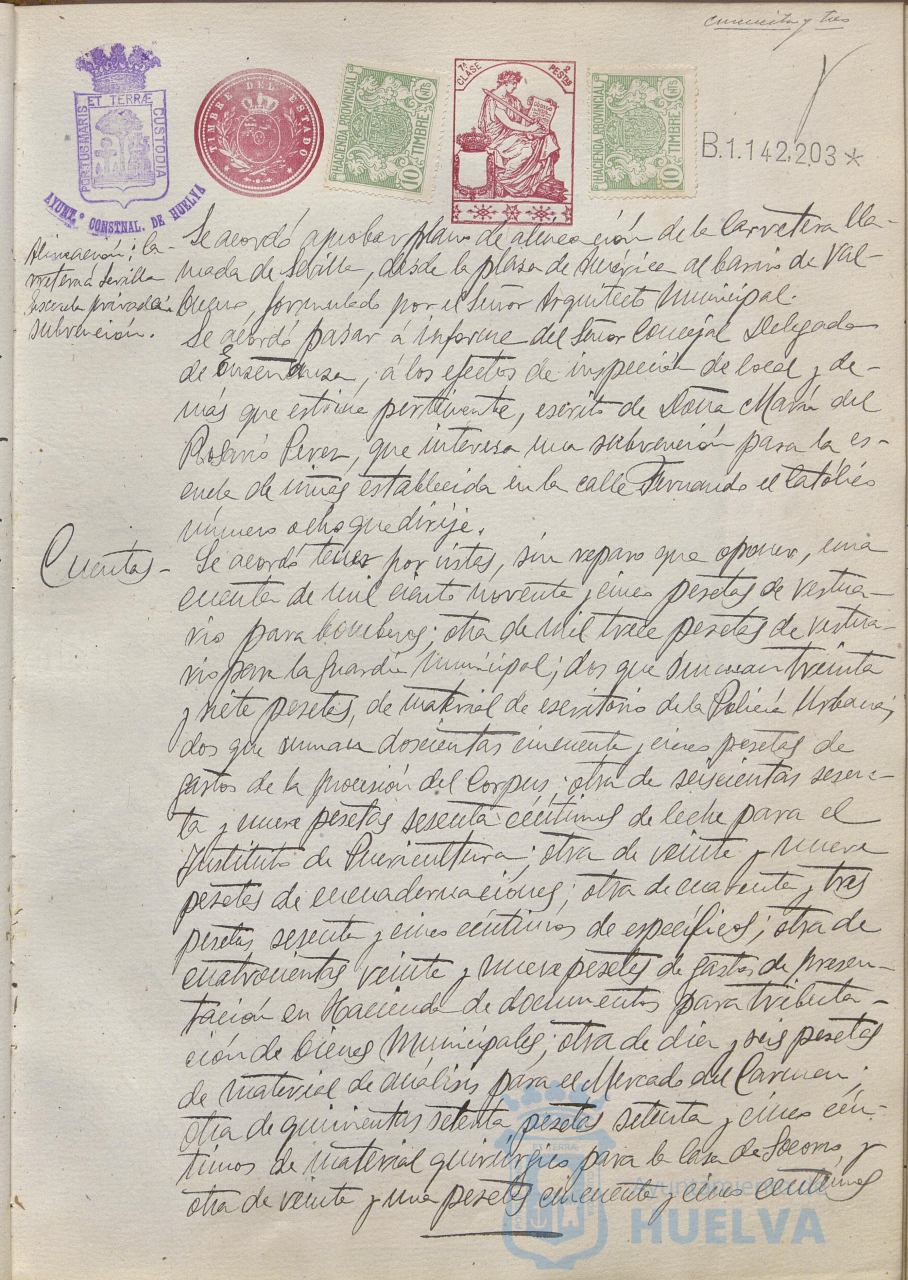 cincuenta y tres
PORTUS MARIS ET TERRÆ CUSTODIA
AYUNT.º CONSTNAL. DE HUELVA
TIMBRE DEL ESTADO
HACIENDA PROVINCIAL
TIMBRE
10 CTS
7ª CLASE
2 PESTAS
HACIENDA PROVINCIAL
TIMBRE
10 CTS
B.1.142,203*
Alineación; Ca-
rretera Sevilla
Escuela privada
subvención.
Se acordó aprobar plano de alineación de la Carretera lla-
mada de Sevilla, desde la plaza de América al barrio de Val-
buena formulado por el Señor Arquitecto Municipal.
Se acordó pasar á informe del Señor Concejal Delegado
de Enseñanza, á los efectos de inspección de local y de-
más que estime pertinente, escrito de Doña María del
Rosario Perez, que interesa una subvención para la es-
cuela de niñas establecida en la calle Fernando el Católico
número ocho que dirije.
Cuentas-
Se acordó tener por vistas, sin reparo que oponer, una
cuenta de mil ciento noventa y cinco pesetas de vestua-
rio para bomberos; otra de mil trece pesetas de vestua-
rio para la Guardia Municipal; dos que suman treinta
y siete pesetas, de material de escritorio de la Policía Urbana;
dos que suman doscientas cincuenta y cinco pesetas de
gastos de la procesión del Corpus; otra de seiscientas sesen-
ta y nueve pesetas sesenta céntimos de leche para el
Instituto de Puericultura; otra de veinte y nueve
pesetas de encuadernaciones; otra de cuarenta y tres
pesetas sesenta y cinco céntimos de específicos; otra de
cuatrocientas veinte y nueve pesetas de gastos de presen-
tación en Hacienda de documentos para tributa-
ción de bienes Municipales; otra de diez y seis pesetas
de material de análisis para el Mercado del Carmen;
otra de quinientas setenta pesetas setenta y cinco cén-
timos de material quirúrgico para la Casa de Socorro, y
otra de veinte y una pesetas cincuenta y cinco centimos
Ayuntamiento de
HUELVA